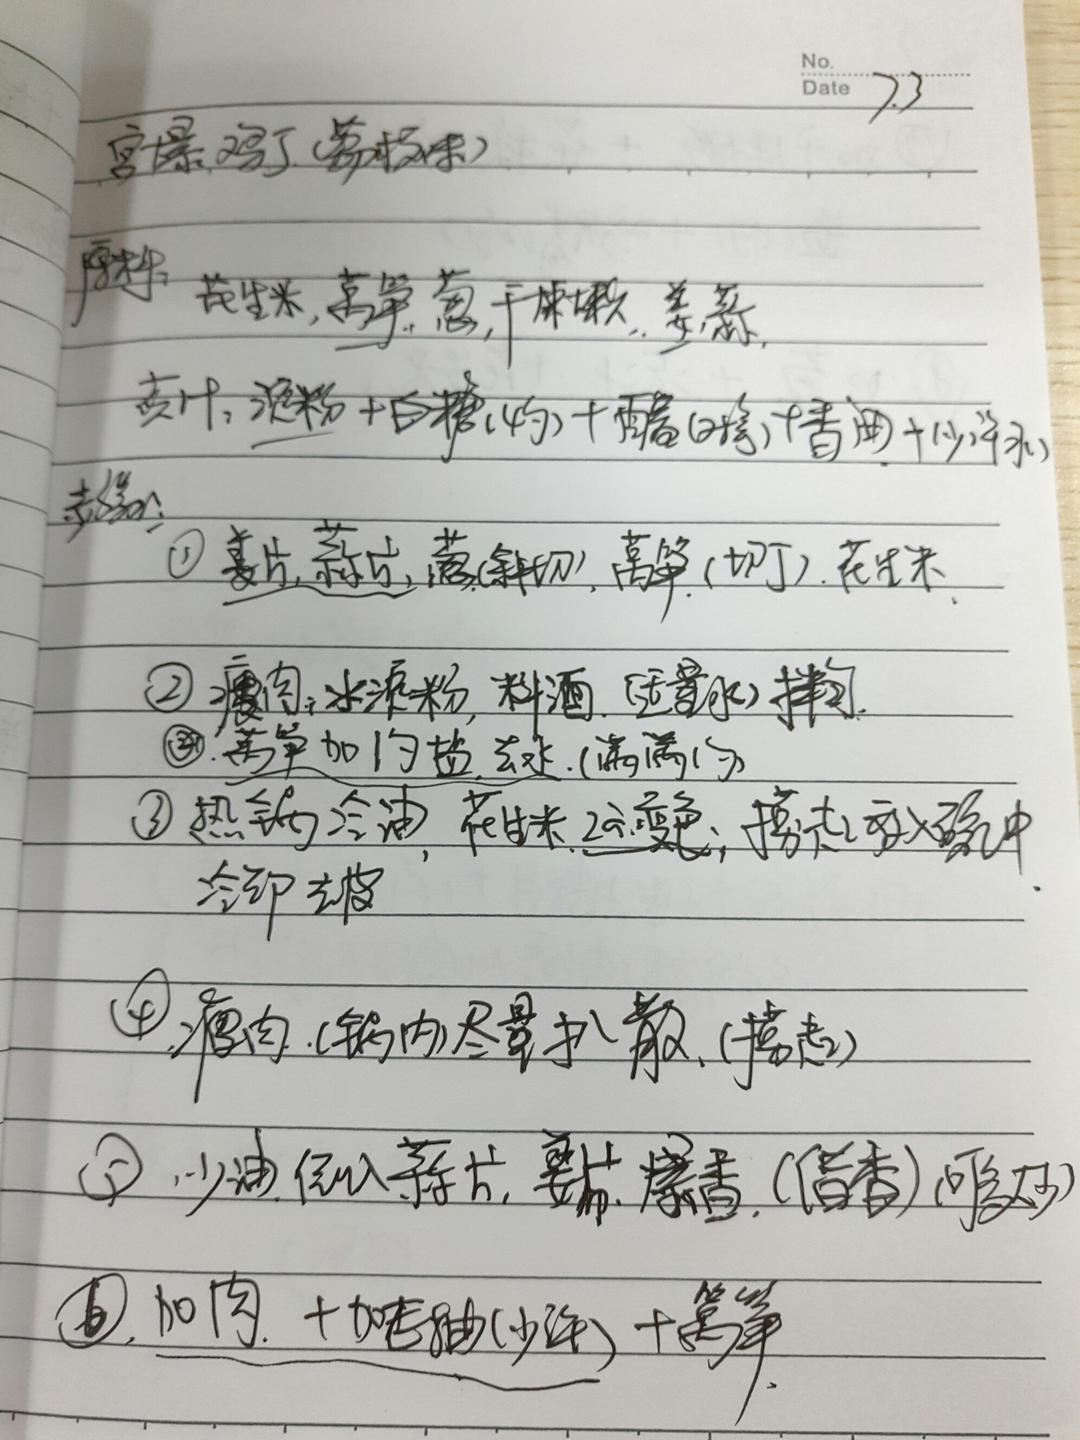 No.
Date 7.3
宫爆鸡丁(荔枝味)
原料:
花生米,莴笋,葱,干辣椒,姜,蒜,
芡汁:淀粉+白糖(4勺)+醋(2勺)+香油+(少许水)
步骤:
①姜片,蒜片,葱(斜切),莴笋(切丁).花生米.
②瘦肉:水淀粉,料酒.(适量水)拌匀.
莴笋加1勺盐.去水.(满满1勺)
③热锅冷油,花生米.变色;捞起放入碗中.
冷却去皮
④瘦肉.(锅内)尽量扒散.(捞起)
⑤少油.倒入蒜片,姜片.爆香.
⑥.加肉.+加老抽(少许)+莴笋.